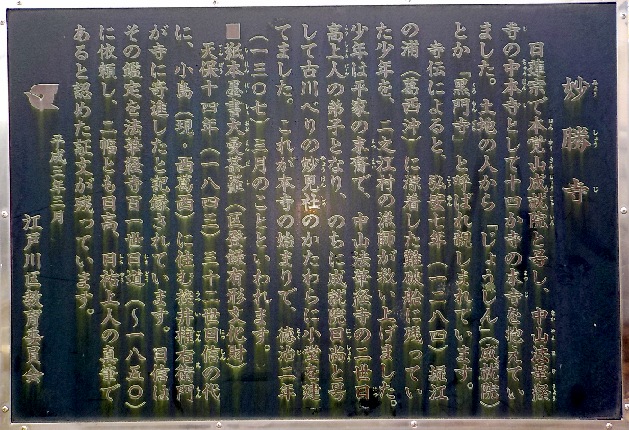 妙勝寺
日蓮宗で本覚山成就院と号し、中山法華経
寺の中本寺として十四か寺の末寺を抱えてい
ました。土地の人から「じょうじん」(成就院)
とか「黒門寺」と呼ばれ親しまれています。
寺伝によると、弘安七年(一二八四)、堀江
の浦(葛西沖)に漂着した難破船に残ってい
た少年を、二之江村の漁師が救い上げました。
少年は平家の末裔で、中山法華経寺の二世日
高上人の弟子となり、のちに成就院日尚と号
して古川べりの妙見社のかたわらに小堂を建
てました。これが本寺の始まりで、徳治二年
(一三〇七)三月のことといわれます。
■紙本墨書大曼荼羅(区登録有形文化財)
天保十四年(一八四三)三十二世日信の代
に、小島(現・西葛西)に住む桜井権右衛門
が寺に寄進したと記録されています。日信は
その鑑定を法華経寺百一世日道(~一八五〇)
に依頼し、二幅とも日高、日祐上人の真筆で
あると認めた証文が残っています。
平成二年三月
江戸川区教育委員会